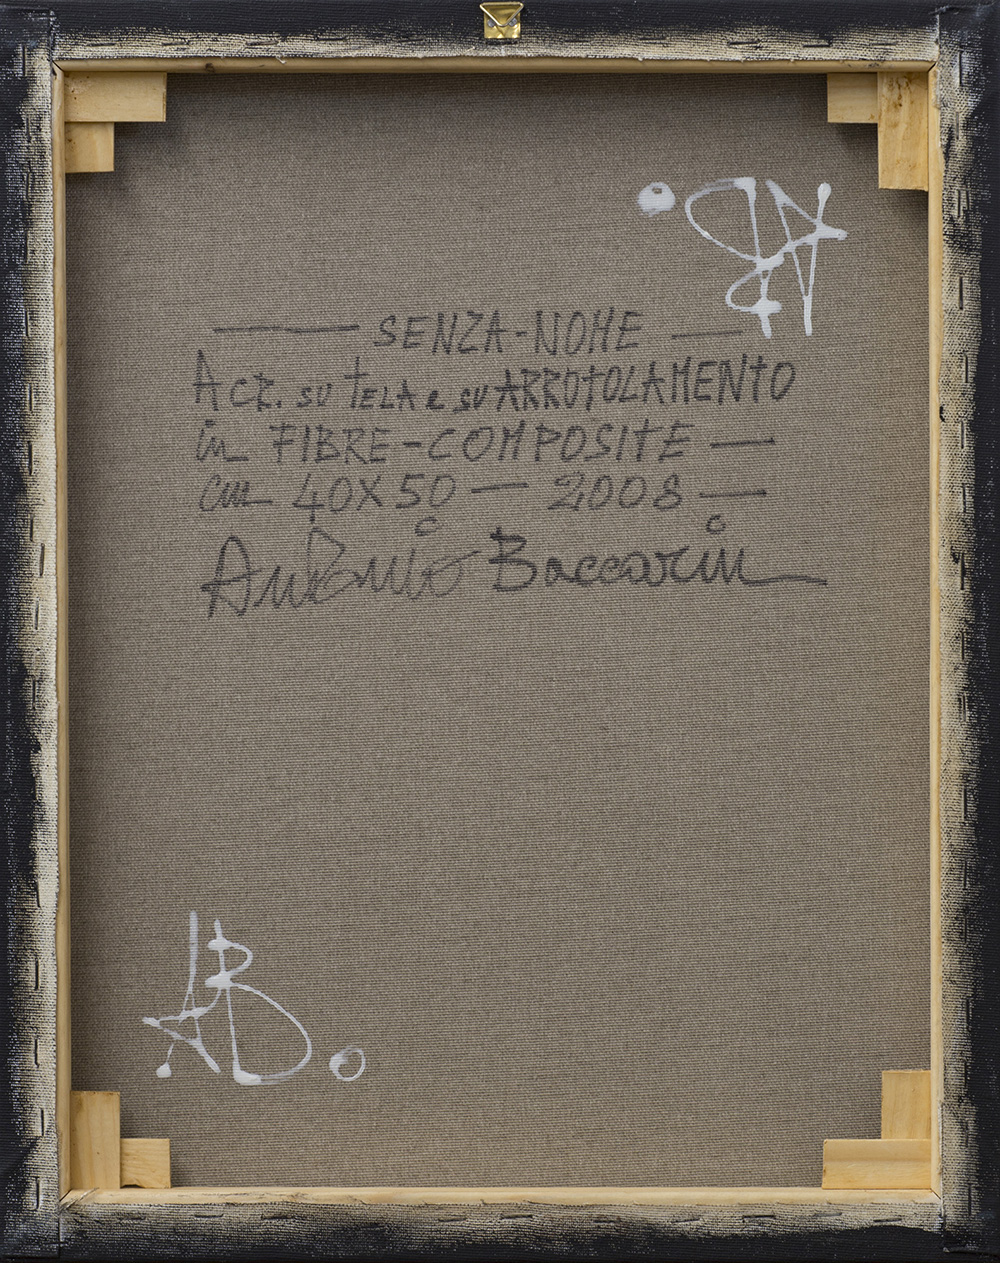 — SENZA-NOME —
ACR. su TELA e su ARROTOLAMENTO
in FIBRE-COMPOSITE —
cm 40X50 — 2008 —
Antonio Baccarin
AB.
AB.